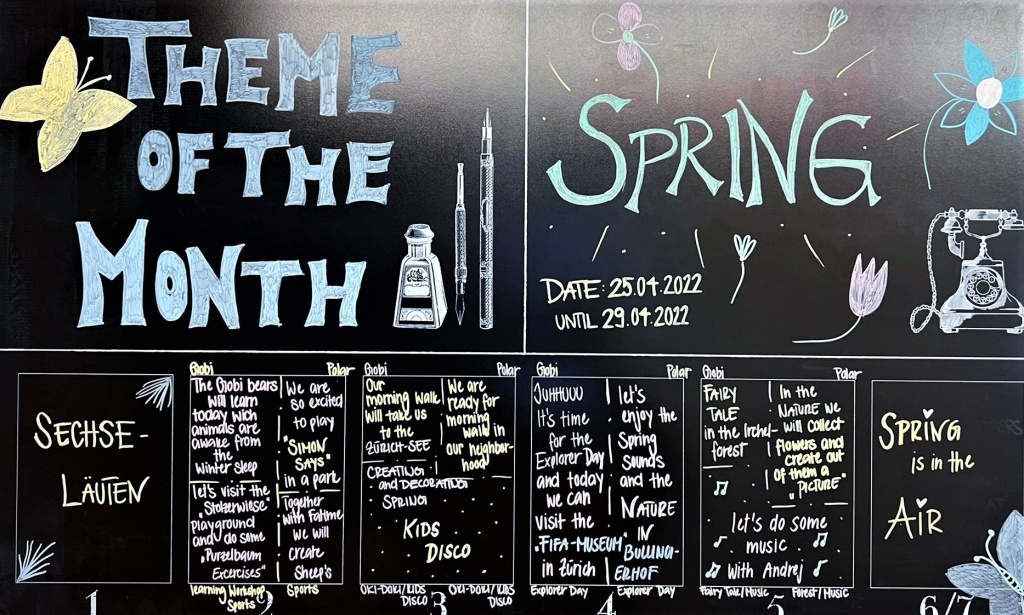 THEME
OF THE
MONTH
SPRING
DATE: 25.04.2022
UNTIL 29.04.2022
SECHSE-
LÄUTEN
1
Gobi
Polar
The Gobi bears
will learn
today wich
animals are
awake from
the
winter sleep
We are
so excited
to play
"SIMON
SAYS"
in a park
let's visit the
"Stolzerwiese"
playground
and do some
"Purzelbaum
Exercises"
Together
with Fatime
we will
create
Sheep's
learning Workshop
Sports
Sports
2
Gobi
Polar
Our
morning walk
will take us
to the
ZÜRICH-SEE
We are
ready for
morning
walk in
our neighbor-
hood
CREATING
and DECORATING
SPRING
KIDS
DISCO
OKI-DOKI/KIDS
DISCO
OKI-DOKI/KIDS
DISCO
3
Gobi
Polar
JUHHUUU
It's time
for the
Explorer Day
and today
we can
visit the
"FIFA-MUSEUM"
in Zürich
let's
enjoy the
Spring
Sounds
and the
NATURE
IN
BULLINGI-
ERHOF
Explorer Day
Explorer Day
4
Gobi
Polar
FAIRY
TALE
in the Irchel-
forest
In the
NATURE we
will collect
flowers and
create out
of them a
"PICTURE"
let's do some
music
with Andrej
Fairy Tale/Music
Forest/Music
5
SPRING
is in the
AIR
6/7